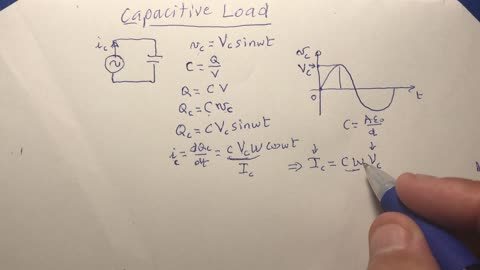 Capacitive Load
i_c
v_c = V_c sinwt
C = Q/V
Q = C V
Q_c = C v_c
Q_c = C V_c sinwt
i_c = dQ_c/dt = C V_c w coswt
I_c
⇒ I_c = C w V_c
v_c
V_c
0
t
C = Aε_0/d